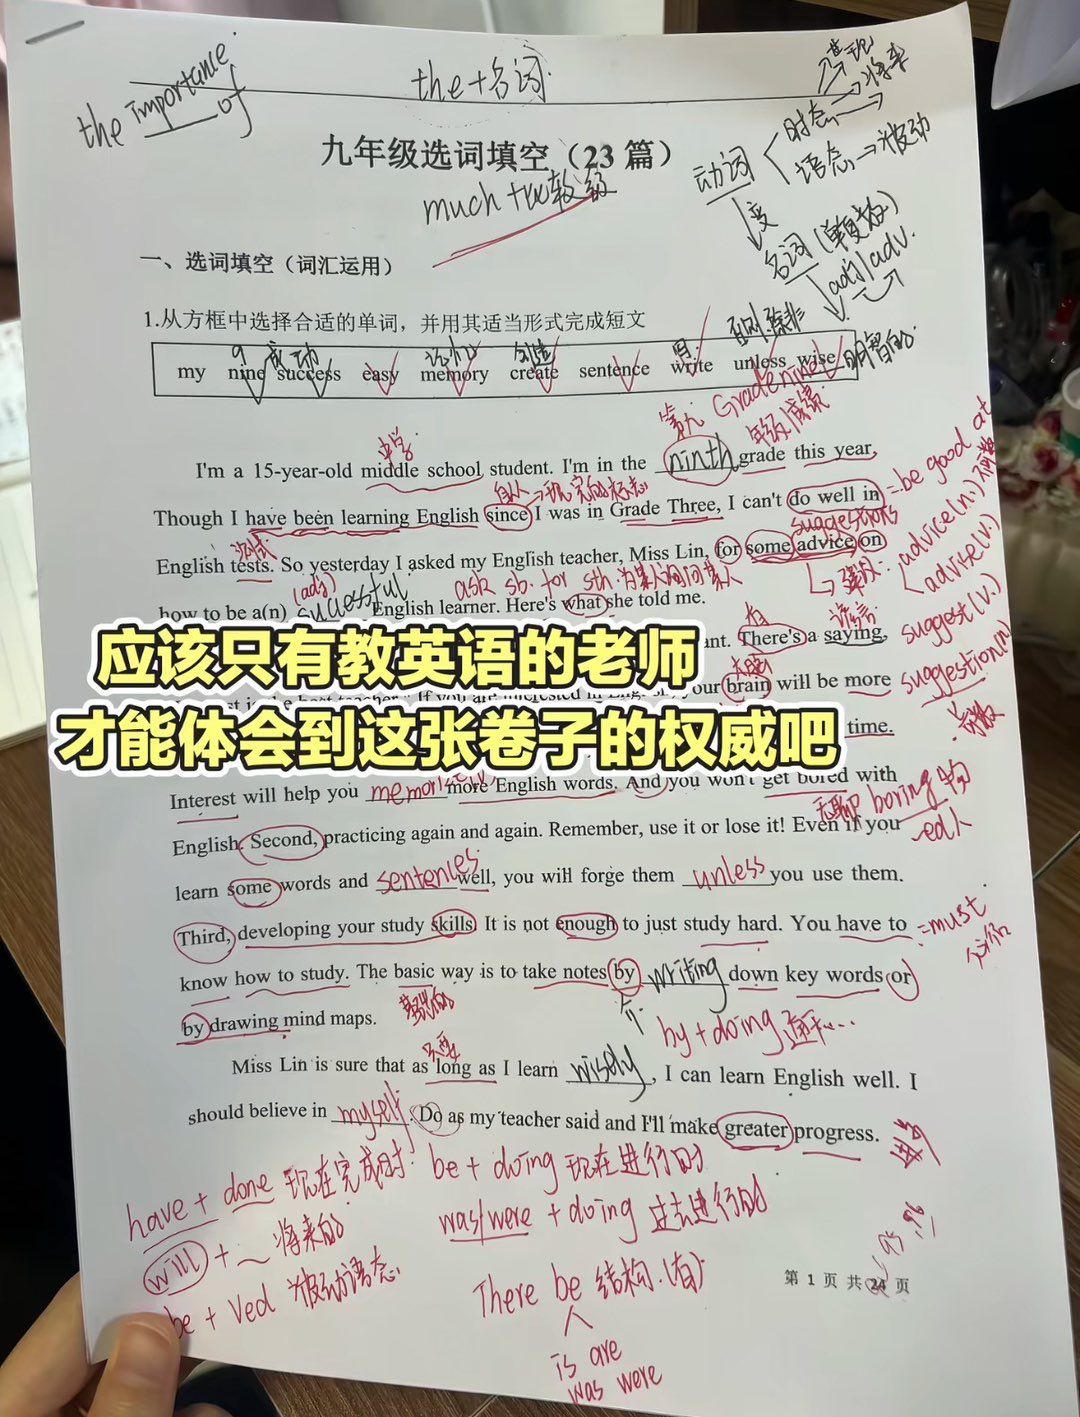 the importance of
the+名词.
时态
语态→被动
动词
变
名词(单复数)
adj/adv.
九年级选词填空（23 篇）
much+比较级
一、选词填空（词汇运用）
1.从方框中选择合适的单词，并用其适当形式完成短文
9 成功 记忆 创造 写. 除非 明智的.
my nine success easy memory create sentence write unless wise
第九 Grade nine
年级
中学
I'm a 15-year-old middle school student. I'm in the ninth grade this year,
自从→现完的标志
Though I have been learning English since I was in Grade Three, I can't do well in =be good at
测试 suggestions
English tests. So yesterday I asked my English teacher, Miss Lin, for some advice on
advice(n.)
advise(v.)
(adj) ask sb. for sth.
how to be a(n) sucessful English learner. Here's what she told me.
有 谚语
suggest(v.)
ant. There's a saying,
大脑
suggestion(n)
our brain will be more
应该只有教英语的老师
才能体会到这张卷子的权威吧
time.
Interest will help you more English words. And you won't get bored with
无聊 boring 物
-ed人
English. Second, practicing again and again. Remember, use it or lose it! Even if you
learn some words and sentences well, you will forge them unless you use them.
Third, developing your study skills. It is not enough to just study hard. You have to =must
know how to study. The basic way is to take notes by writing down key words or
基础的
by drawing mind maps.
by+doing 通过...
只要
Miss Lin is sure that as long as I learn wisely, I can learn English well. I
should believe in myself. Do as my teacher said and I'll make greater progress.
have + done 现在完成时. be + doing 现在进行时
will + 将来时 was/were + doing 过去进行时
be + Ved 被动语态 There be 结构.(有).
is are
was were
第 1 页 共 24 页